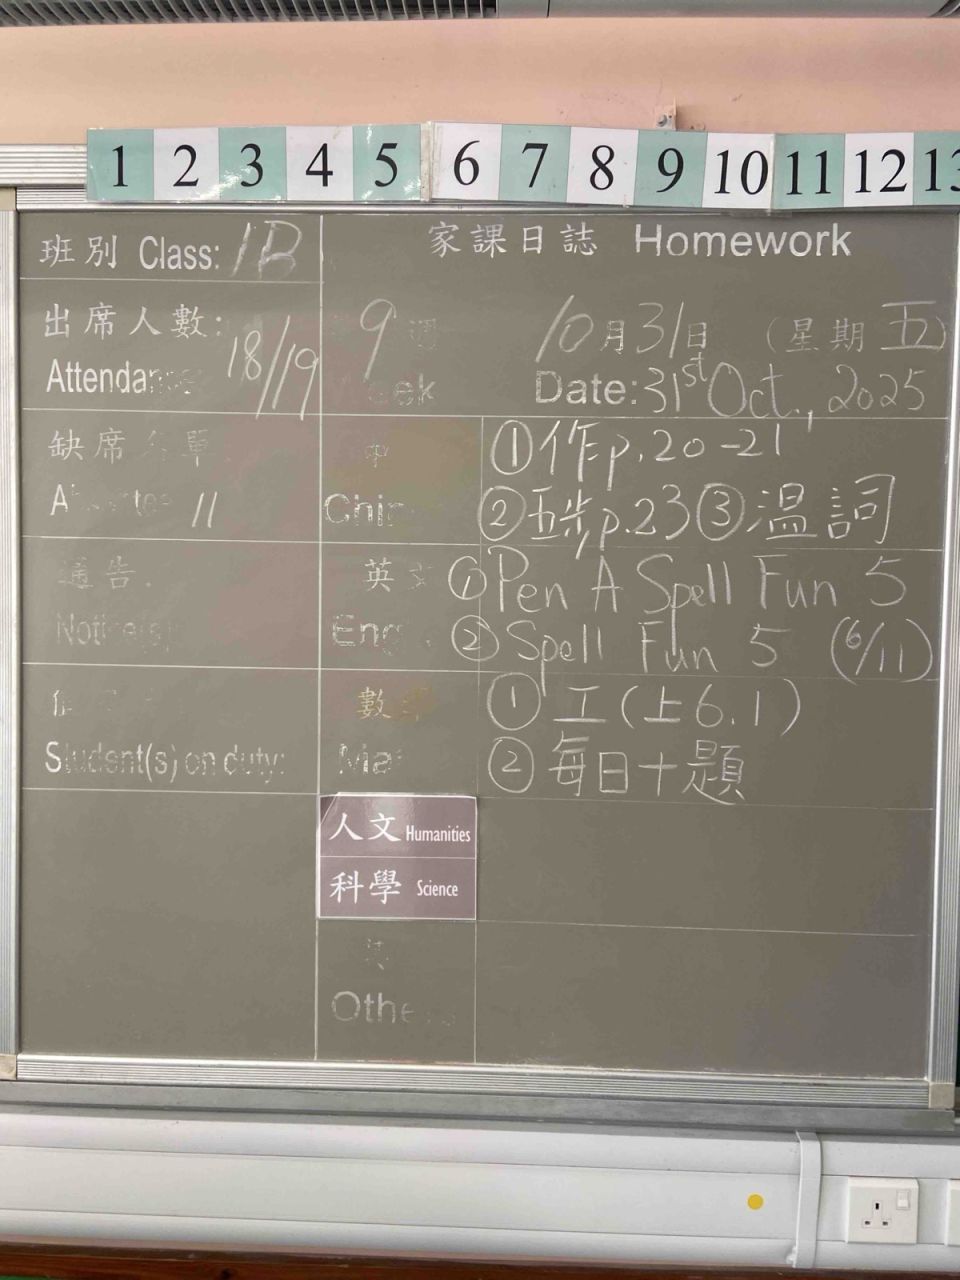 1 2 3 4 5 6 7 8 9 10 11 12 13
班別 Class: 1B
家課日誌 Homework
出席人數:
Attendance 18/19
9 週
Week
10月31日 (星期五)
Date: 31st Oct., 2025
缺席名單
11
中
Chin
①作p.20-21
②五步p.23 ③溫詞
通告.
Notice(s)
英文
Eng
①Pen A Spell Fun 5
②Spell Fun 5 (6/11)
Student(s) on duty:
數
Ma
①工(上6.1)
②每日十題
人文 Humanities
科學 Science
Othe